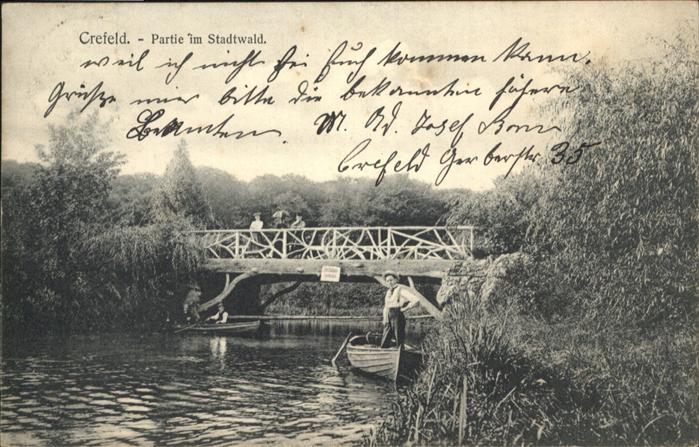 Crefeld. - Partie im Stadtwald.
weil ich nicht bei Euch kommen kann.
Grüße mir bitte die bekannten
Bekannten. M. Ad. Josef Born
Crefeld Gerberstr 35